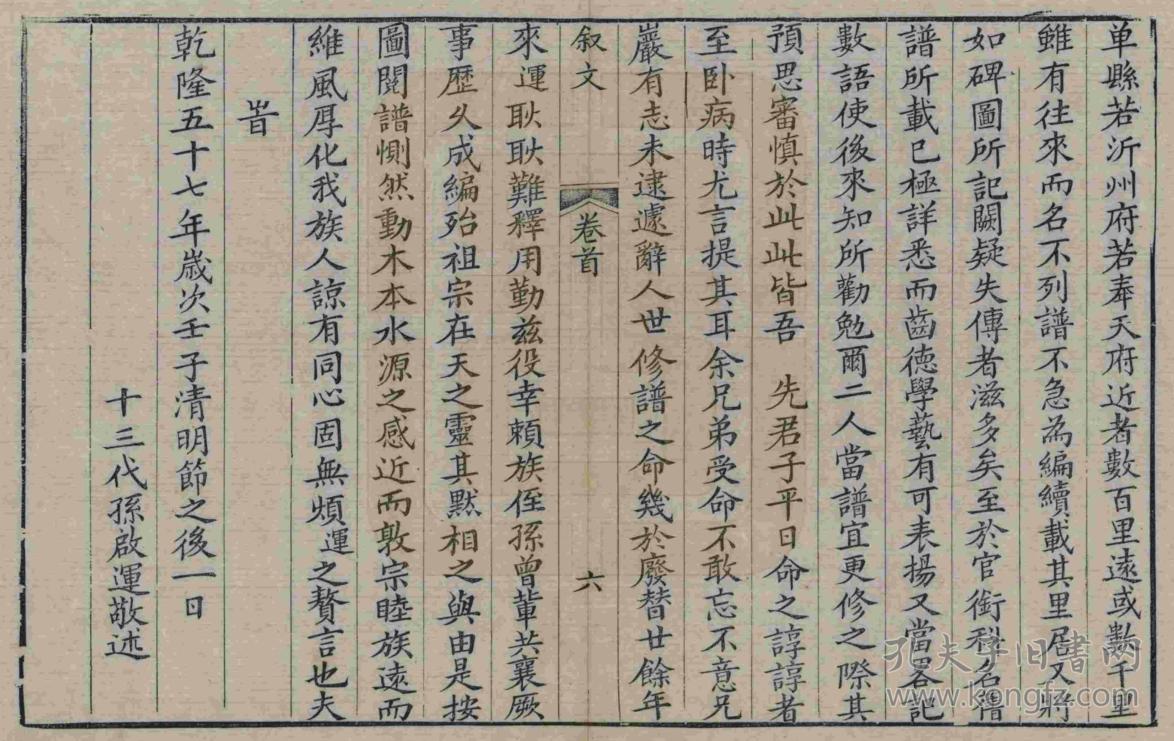 单縣若沂州府若奉天府近者數百里遠或數千里
雖有往來而名不列譜不急為編續載其里居又將
如碑圖所記闕疑失傳者滋多矣至於官銜科名舊
譜所載已極詳悉而齒德學藝有可表揚又當畧記
數語使後來知所勸勉爾二人當譜宜更修之際其
預思審慎於此此皆吾 先君子平日命之諄諄者
至卧病時尤言提其耳余兄弟受命不敢忘不意兄
嚴有志未逮遽辭人世修譜之命幾於廢替廿餘年
叙文 卷首 六
來運耿耿難釋用勤兹役幸賴族侄孫曾輩共襄厥
事歷久成編殆祖宗在天之靈其默相之與由是按
圖閱譜惻然動木本水源之感近而敦宗睦族遠而
維風厚化我族人諒有同心固無煩運之贅言也夫
旹
乾隆五十七年歲次壬子清明節之後一日
十三代孫啟運敬述
孔夫子旧书网
www.kongfz.com